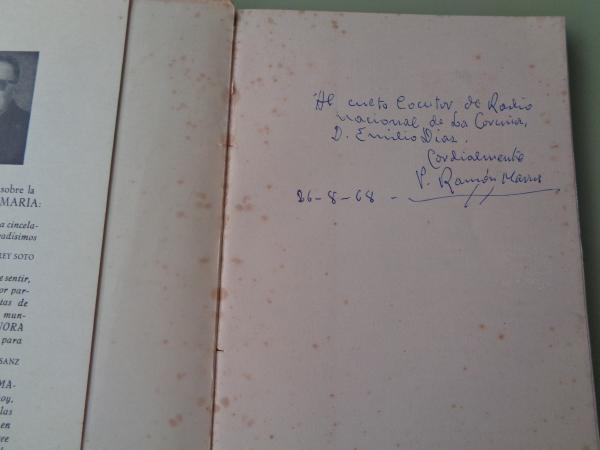 sobre la
MARIA:
a cincela-
vadísimos
REY SOTO
e sentir,
or par-
tas de
mun-
NORA
para
SANZ
MA-
oy,
las
en
ree
Al culto Locutor de Radio
nacional de La Coruña,
D. Emilio Díaz.
Cordialmente
P. Ramón
26-8-68 -